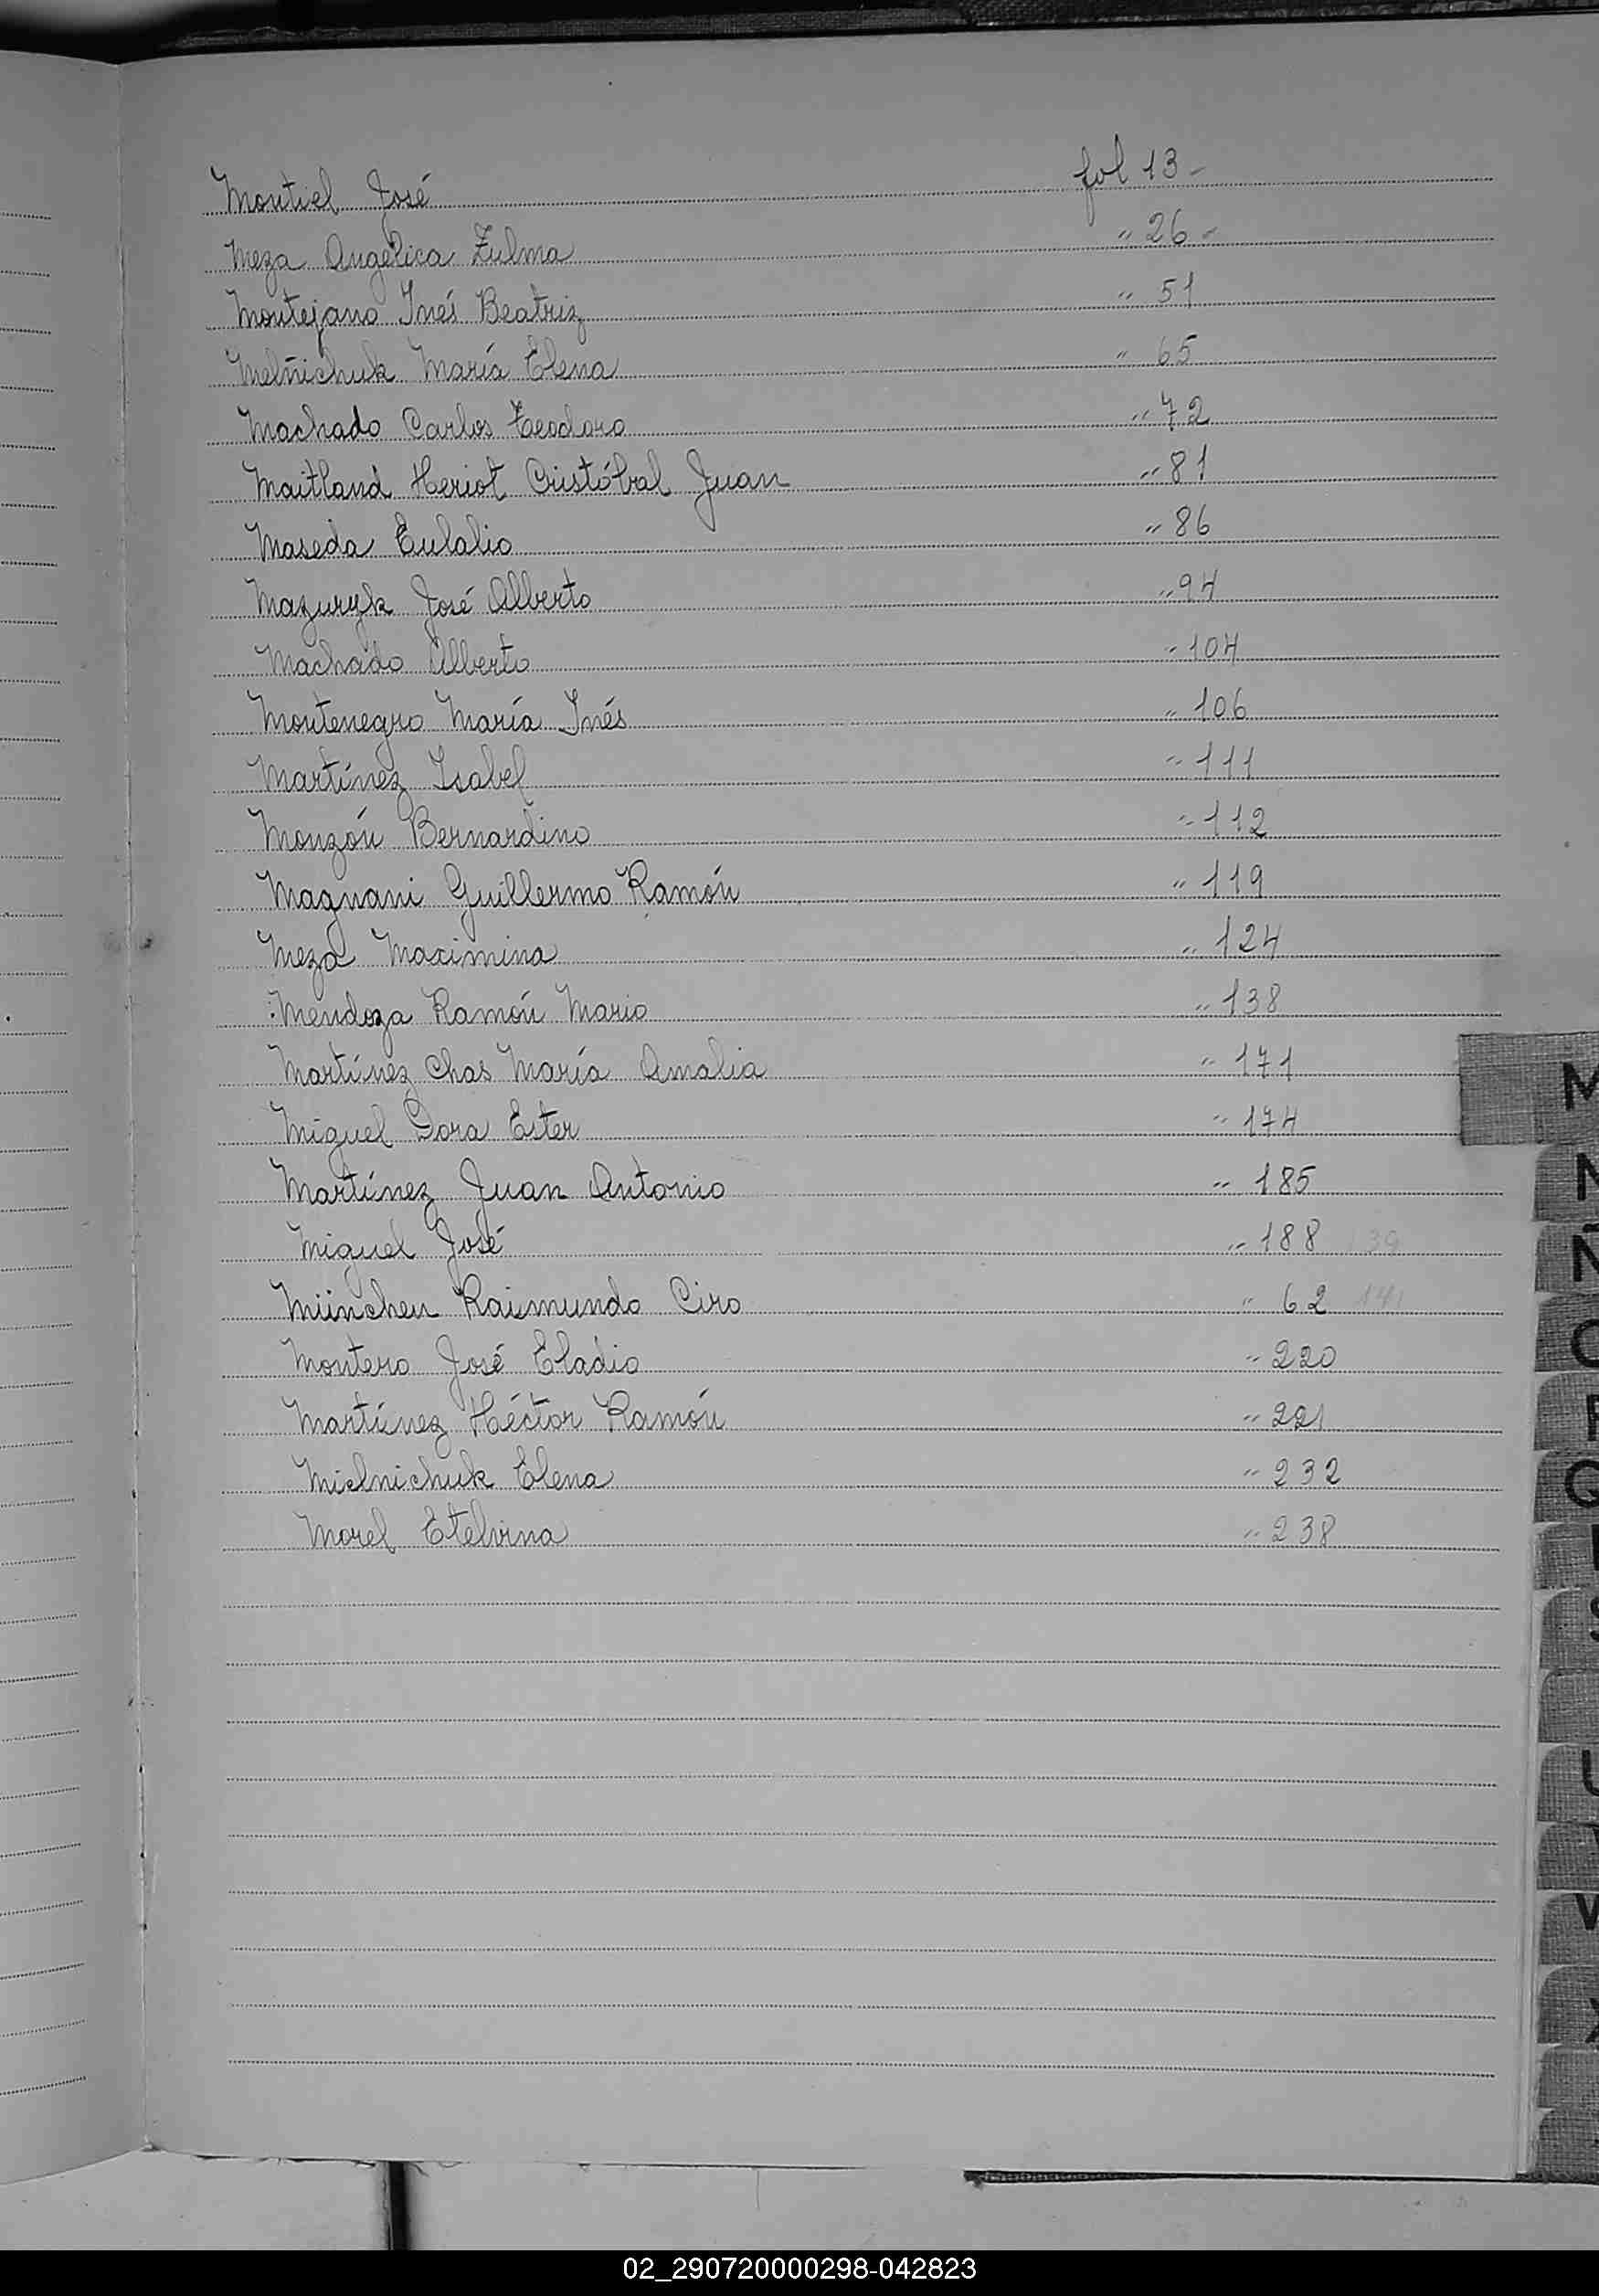 Montiel José fol 13 -
Meza Angélica Zulma " 26 -
Montejano Inés Beatriz " 51
Melñichuk María Elena " 65
Machado Carlos Teodoro " 72
Maitland Heriot Cristóbal Juan " 81
Maseda Eulalio " 86
Mazuryk José Alberto " 94
Machado Alberto " 104
Montenegro María Inés " 106
Martínez Isabel " 111
Monzón Bernardino " 112
Magnani Guillermo Ramón " 119
Meza Maximina " 124
Mendoza Ramón Mario " 138
Martínez Chas María Amalia " 171
Miguel Dora Ester " 174
Martínez Juan Antonio " 185
Miguel José " 188
München Raimundo Ciro " 62
Montero José Eladio " 220
Martínez Héctor Ramón " 221
Mielnichuk Elena " 232
Morel Etelvina " 238
M
N
Ñ
O
P
Q
S
U
V
W
X
02_290720000298-042823